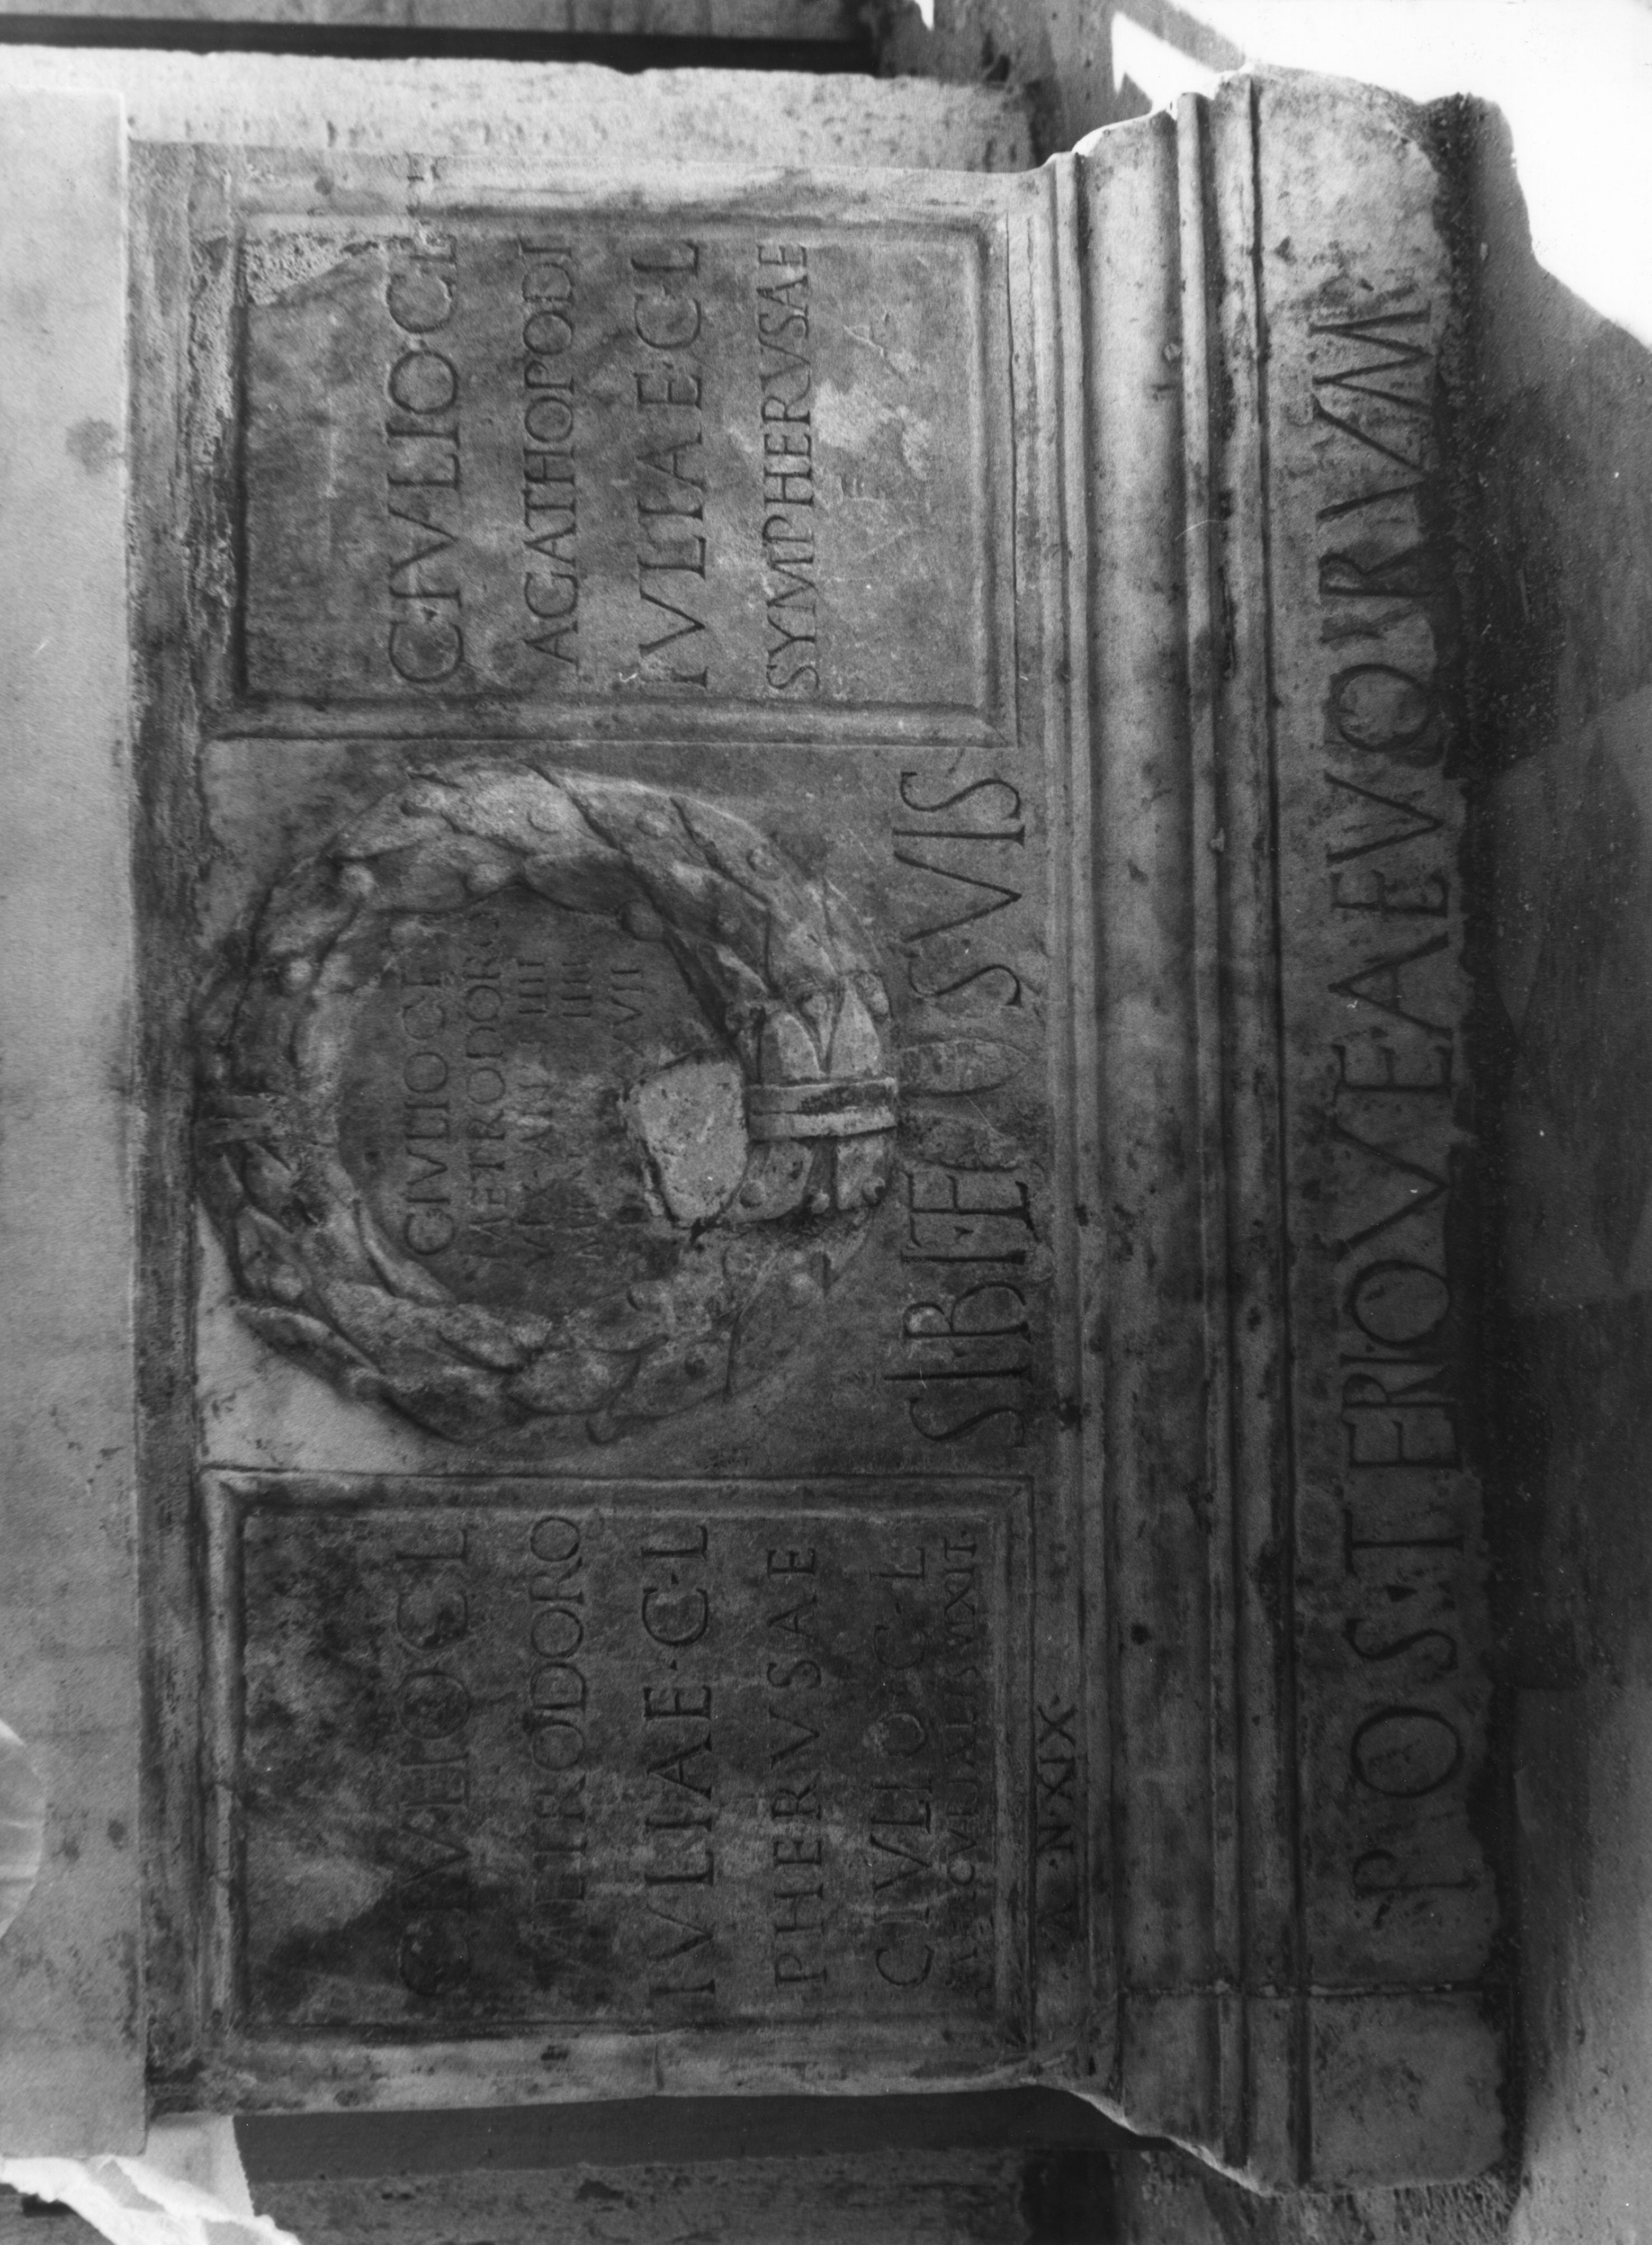 C·IVLIO·C·L
METRODORO
IVLIAE·C·L
PHERVSAE
C·IVLIO·C·L
VIXIT
AN·XIX
C·IVLIO·C·F
METRODORO
VIX·AN·IIII
IIII
VII
SIBI·ET SVIS
C·IVLIO·C
AGATHOPODI
IVLIAE·C·L
SYMPHERVSAE
POSTERIQVE AEVORVM